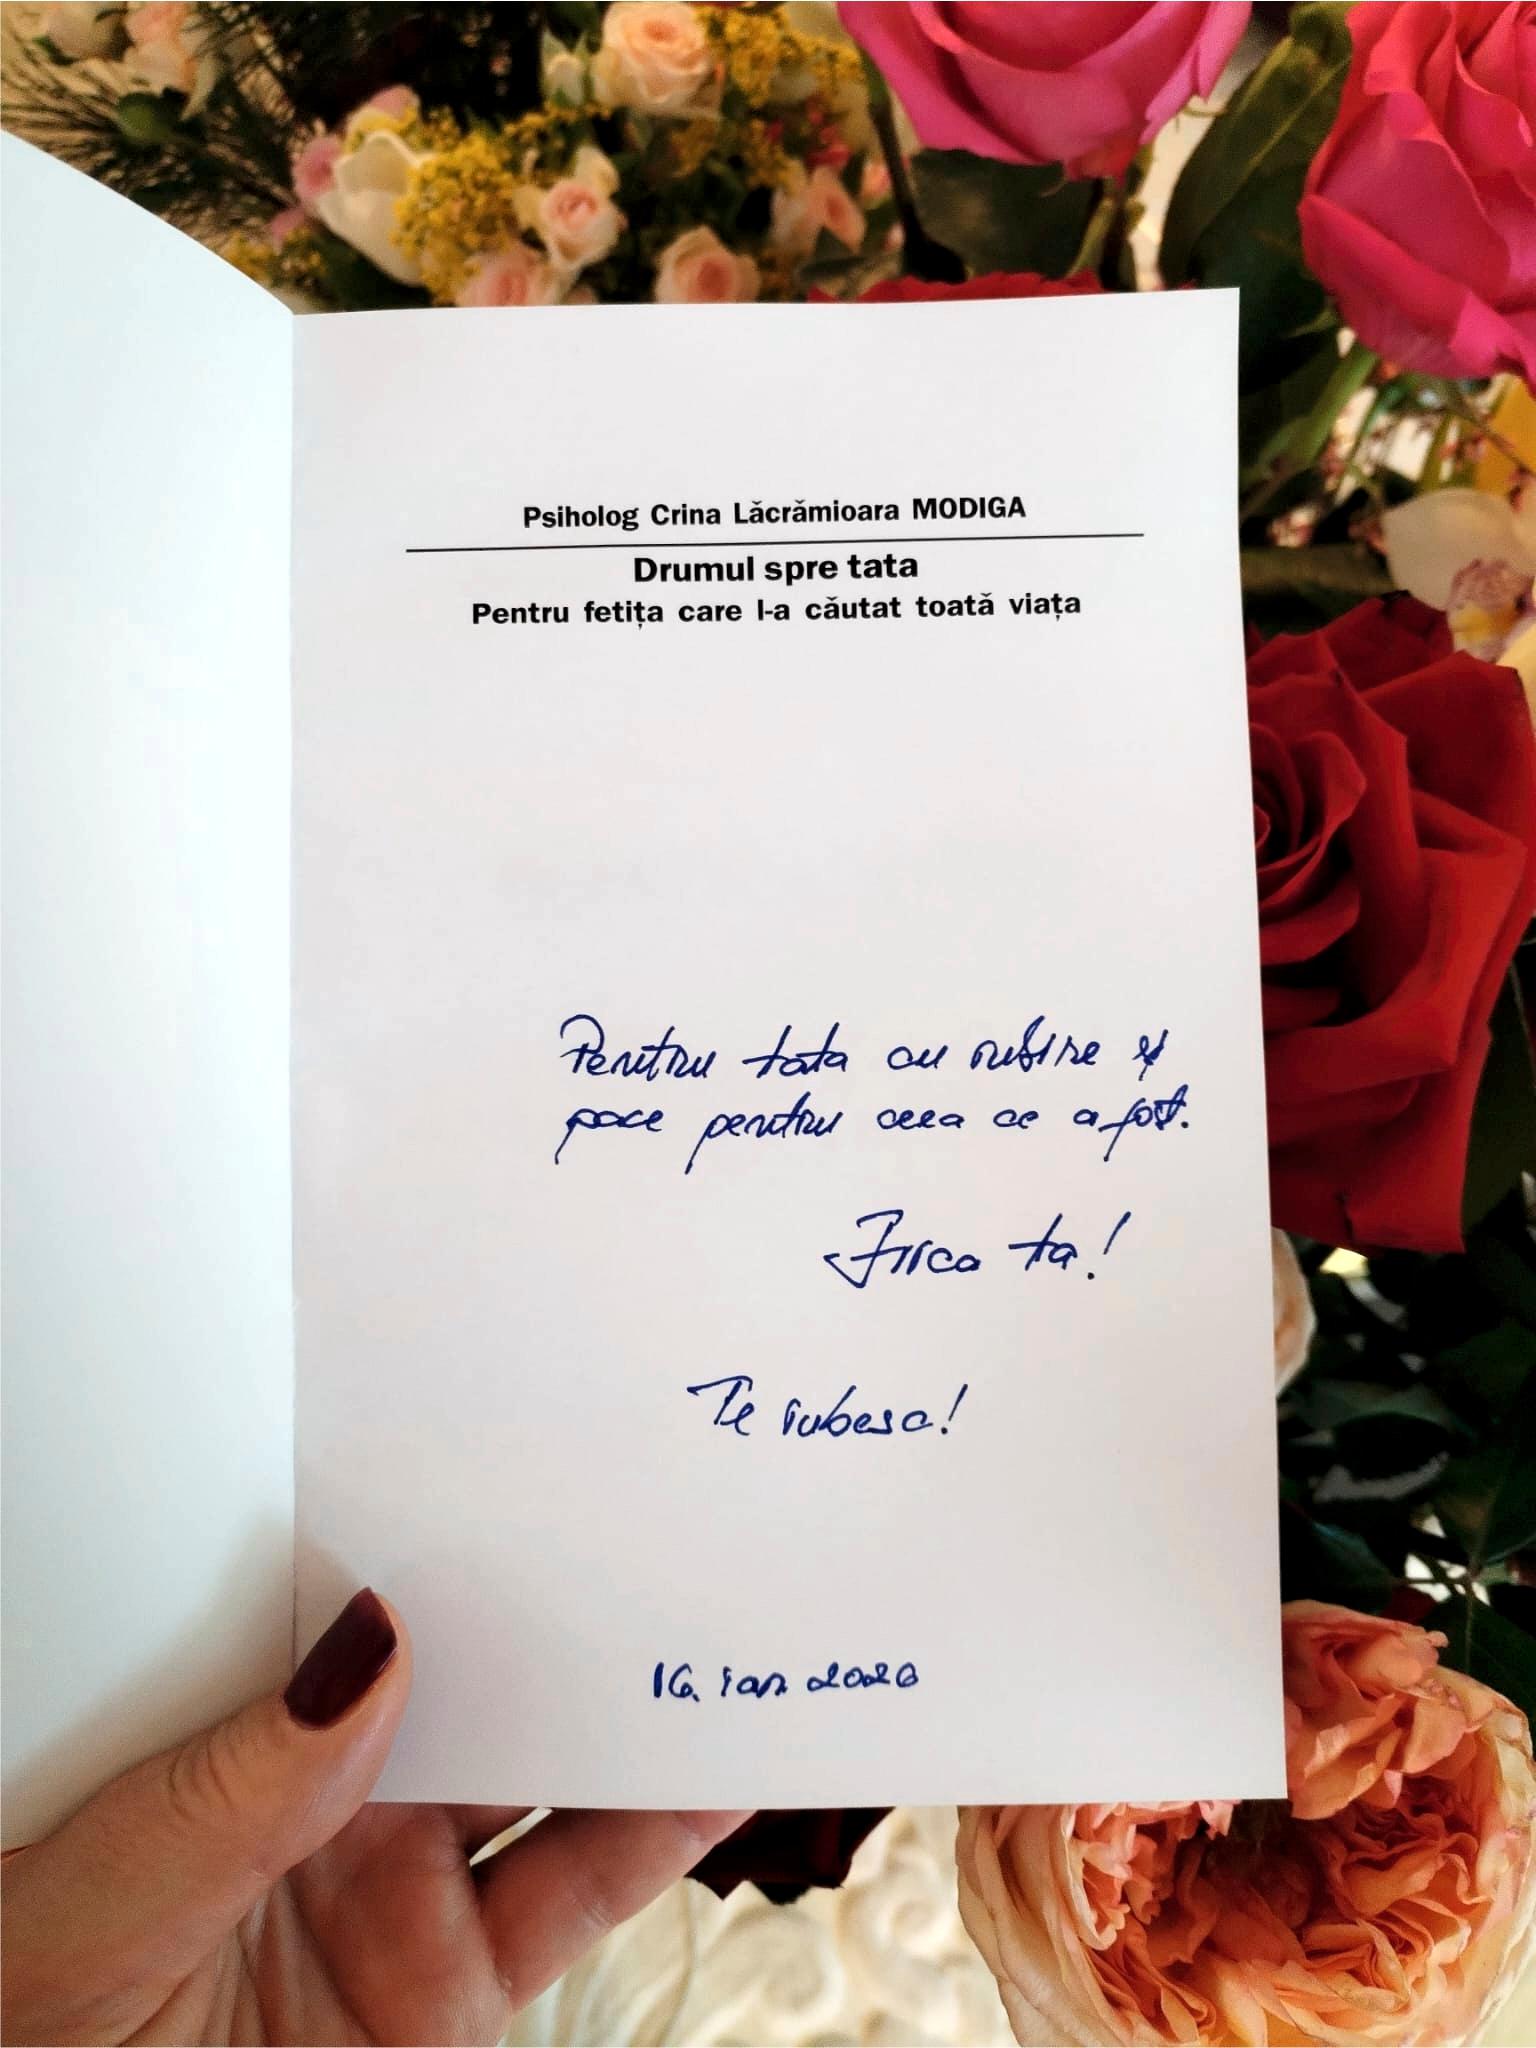 Psiholog Crina Lăcrămioara MODIGA
Drumul spre tata
Pentru fetița care l-a căutat toată viața
Pentru tata cu iubire și
pace pentru ceea ce a fost.
Fiica ta!
Te iubesc!
16. ian. 2026